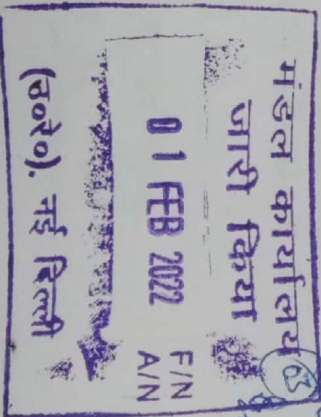 मंडल कार्यालय
जारी किया
01 FEB 2022
F/N
A/N
(उ०रे०). नई दिल्ली